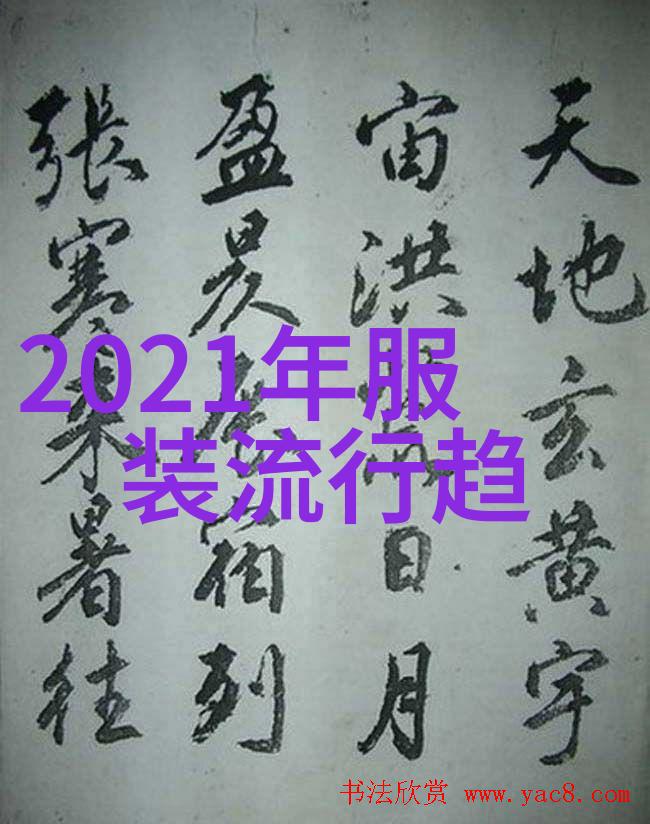 天地玄黄宇
宙洪日月
盈昃辰宿列
張寒来暑往
2021年服
装流行趋
书法欣赏 www.yac8.com